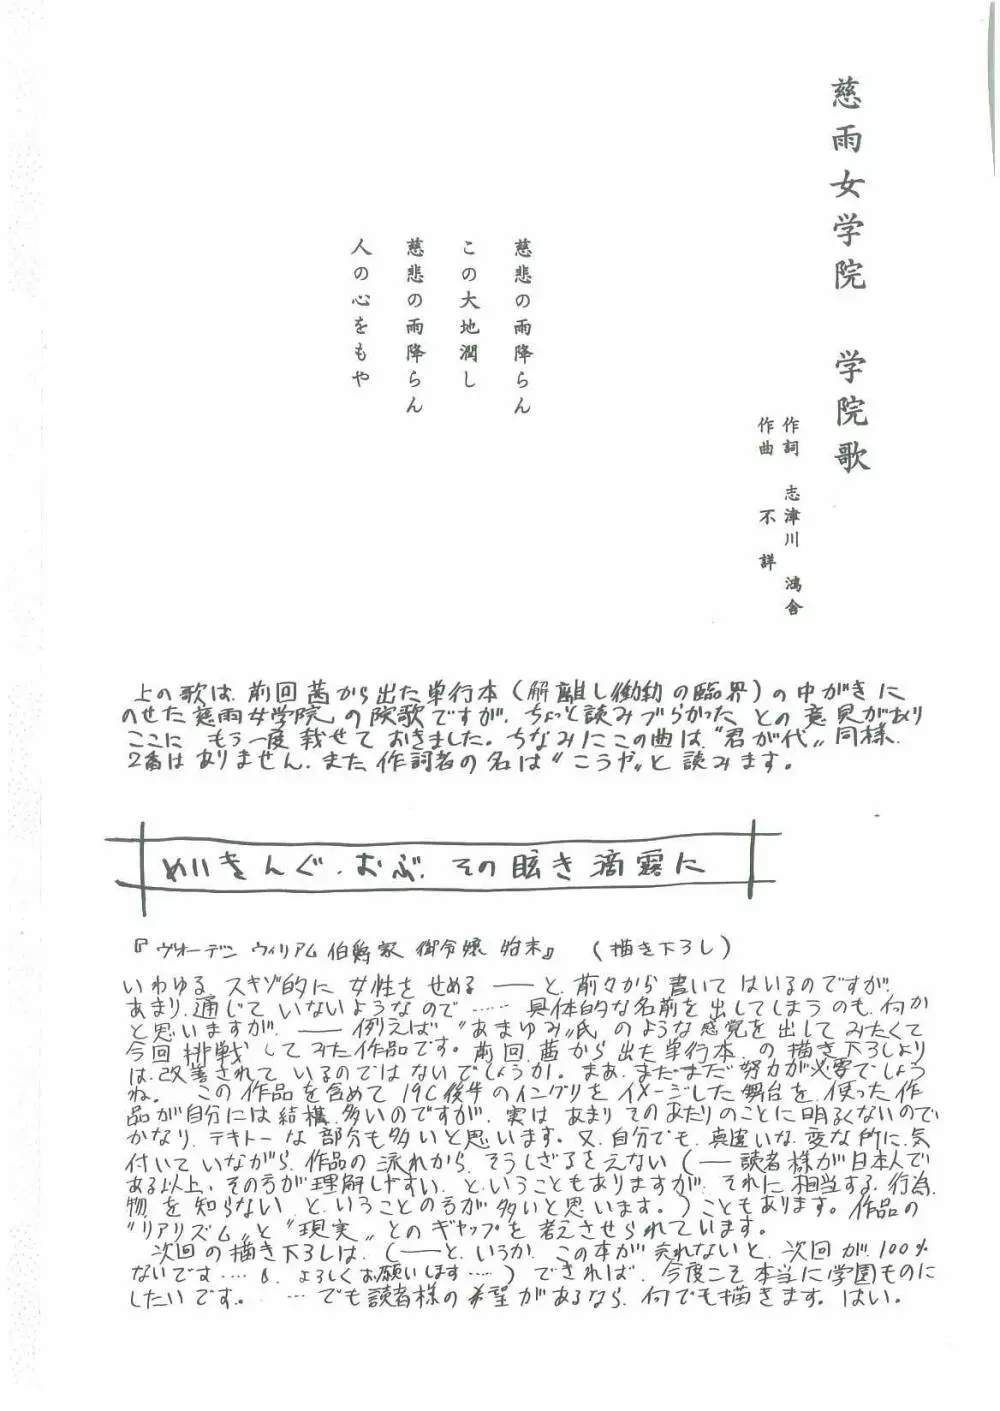 慈雨女学院 学院歌
作詞 志津川 鴻舎
作曲 不詳
慈悲の雨降らん
この大地潤し
慈悲の雨降らん
人の心をもや
上の歌は、前回茜から出た単行本(解離し働動の臨界)の中がきに
のせた慈雨女学院の院歌ですが、ちょっと読みづらかったとの意見があり
ここにもう一度載せておきました。ちなみにこの曲は、“君が代„同様、
2番はありません。また、作詞者の名は“こうや„と読みます。
めいきんぐ・おぶ・その眩き滴露に
『ヴォーデン ウィリアム伯爵家 御令嬢 始末』 (描き下ろし)
いわゆる、スキゾ的に女性をせめる――と、前々から書いてはいるのですが、
あまり、通じていないようなので……具体的な名前を出してしまうのも、何か
と思いますが、――例えば“あまゆみ„氏のような感覚を出してみたくて
今回挑戦してみた作品です。前回、茜から出た単行本、の描き下ろしより
は、改善されているのではないでしょうか。まあ、まだまだ努力が必要でしょう
ね。この作品を含めて19C後半のイングリをイメージした舞台を、使った作
品が自分には結構、多いのですが、実はあまりそのあたりのことに明るくないので
かなり、テキトーな部分も多いと思います。又、自分でも、真違いな、変な所に、気
付いていながら、作品の流れから、そうしざるをえない(――読者様が日本人で
ある以上、その方が理解しやすい、ということもありますが、それに相当する、行為、
物、を知らない、ということの方が多いと思います。)こともあります。作品の
“リアリズム„と“現実„とのギャップを考えさせられています。
次回の描き下ろしは、(――と、いうか、この本が売れないと、次回が、100%
ないです……よろしくお願いします……)できれば、今度こそ本当に学園ものに
したいです。……でも読者様の希望があるなら、何でも描きます。はい。